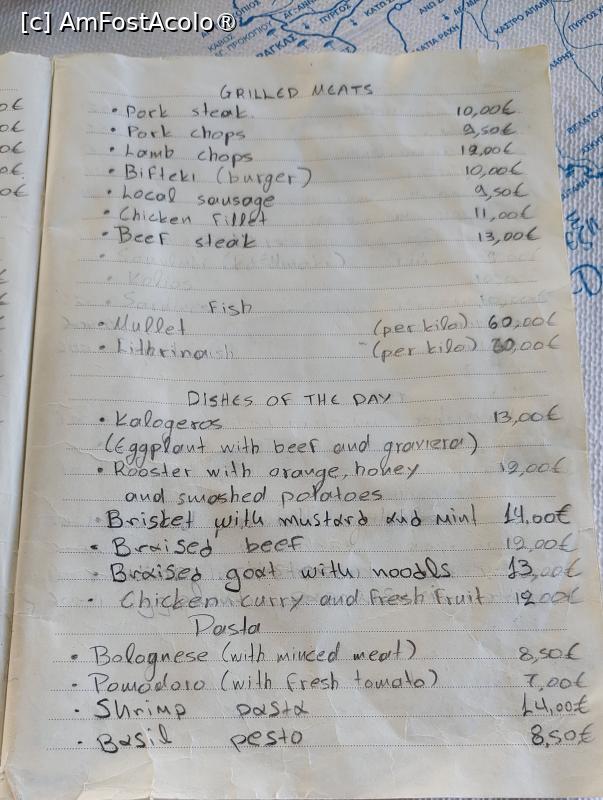 [c] AmFostAcolo®
GRILLED MEATS
• Pork steak 10,00€
• Pork chops 9,50€
• Lamb chops 12,00€
• Bifteki (burger) 10,00€
• Local sausage 9,50€
• Chicken fillet 11,00€
• Beef steak 13,00€
Fish
• Mullet (per kilo) 60,00€
• Lithrina (per kilo) 00€
DISHES OF THE DAY
• Kalogeros 13,00€
(Eggplant with beef and graviera)
• Rooster with orange, honey 12,00€
and smashed potatoes
• Brisket with mustard and mint 14.00€
• Braised beef 12,00€
• Braised goat with noodls 13,00€
• Chicken curry and fresh fruit 12,00€
Pasta
• Bolognese (with minced meat) 8,50€
• Pomodoro (with fresh tomato) 7,00€
• Shrimp pasta 14,00€
• Basil pesto 8,50€